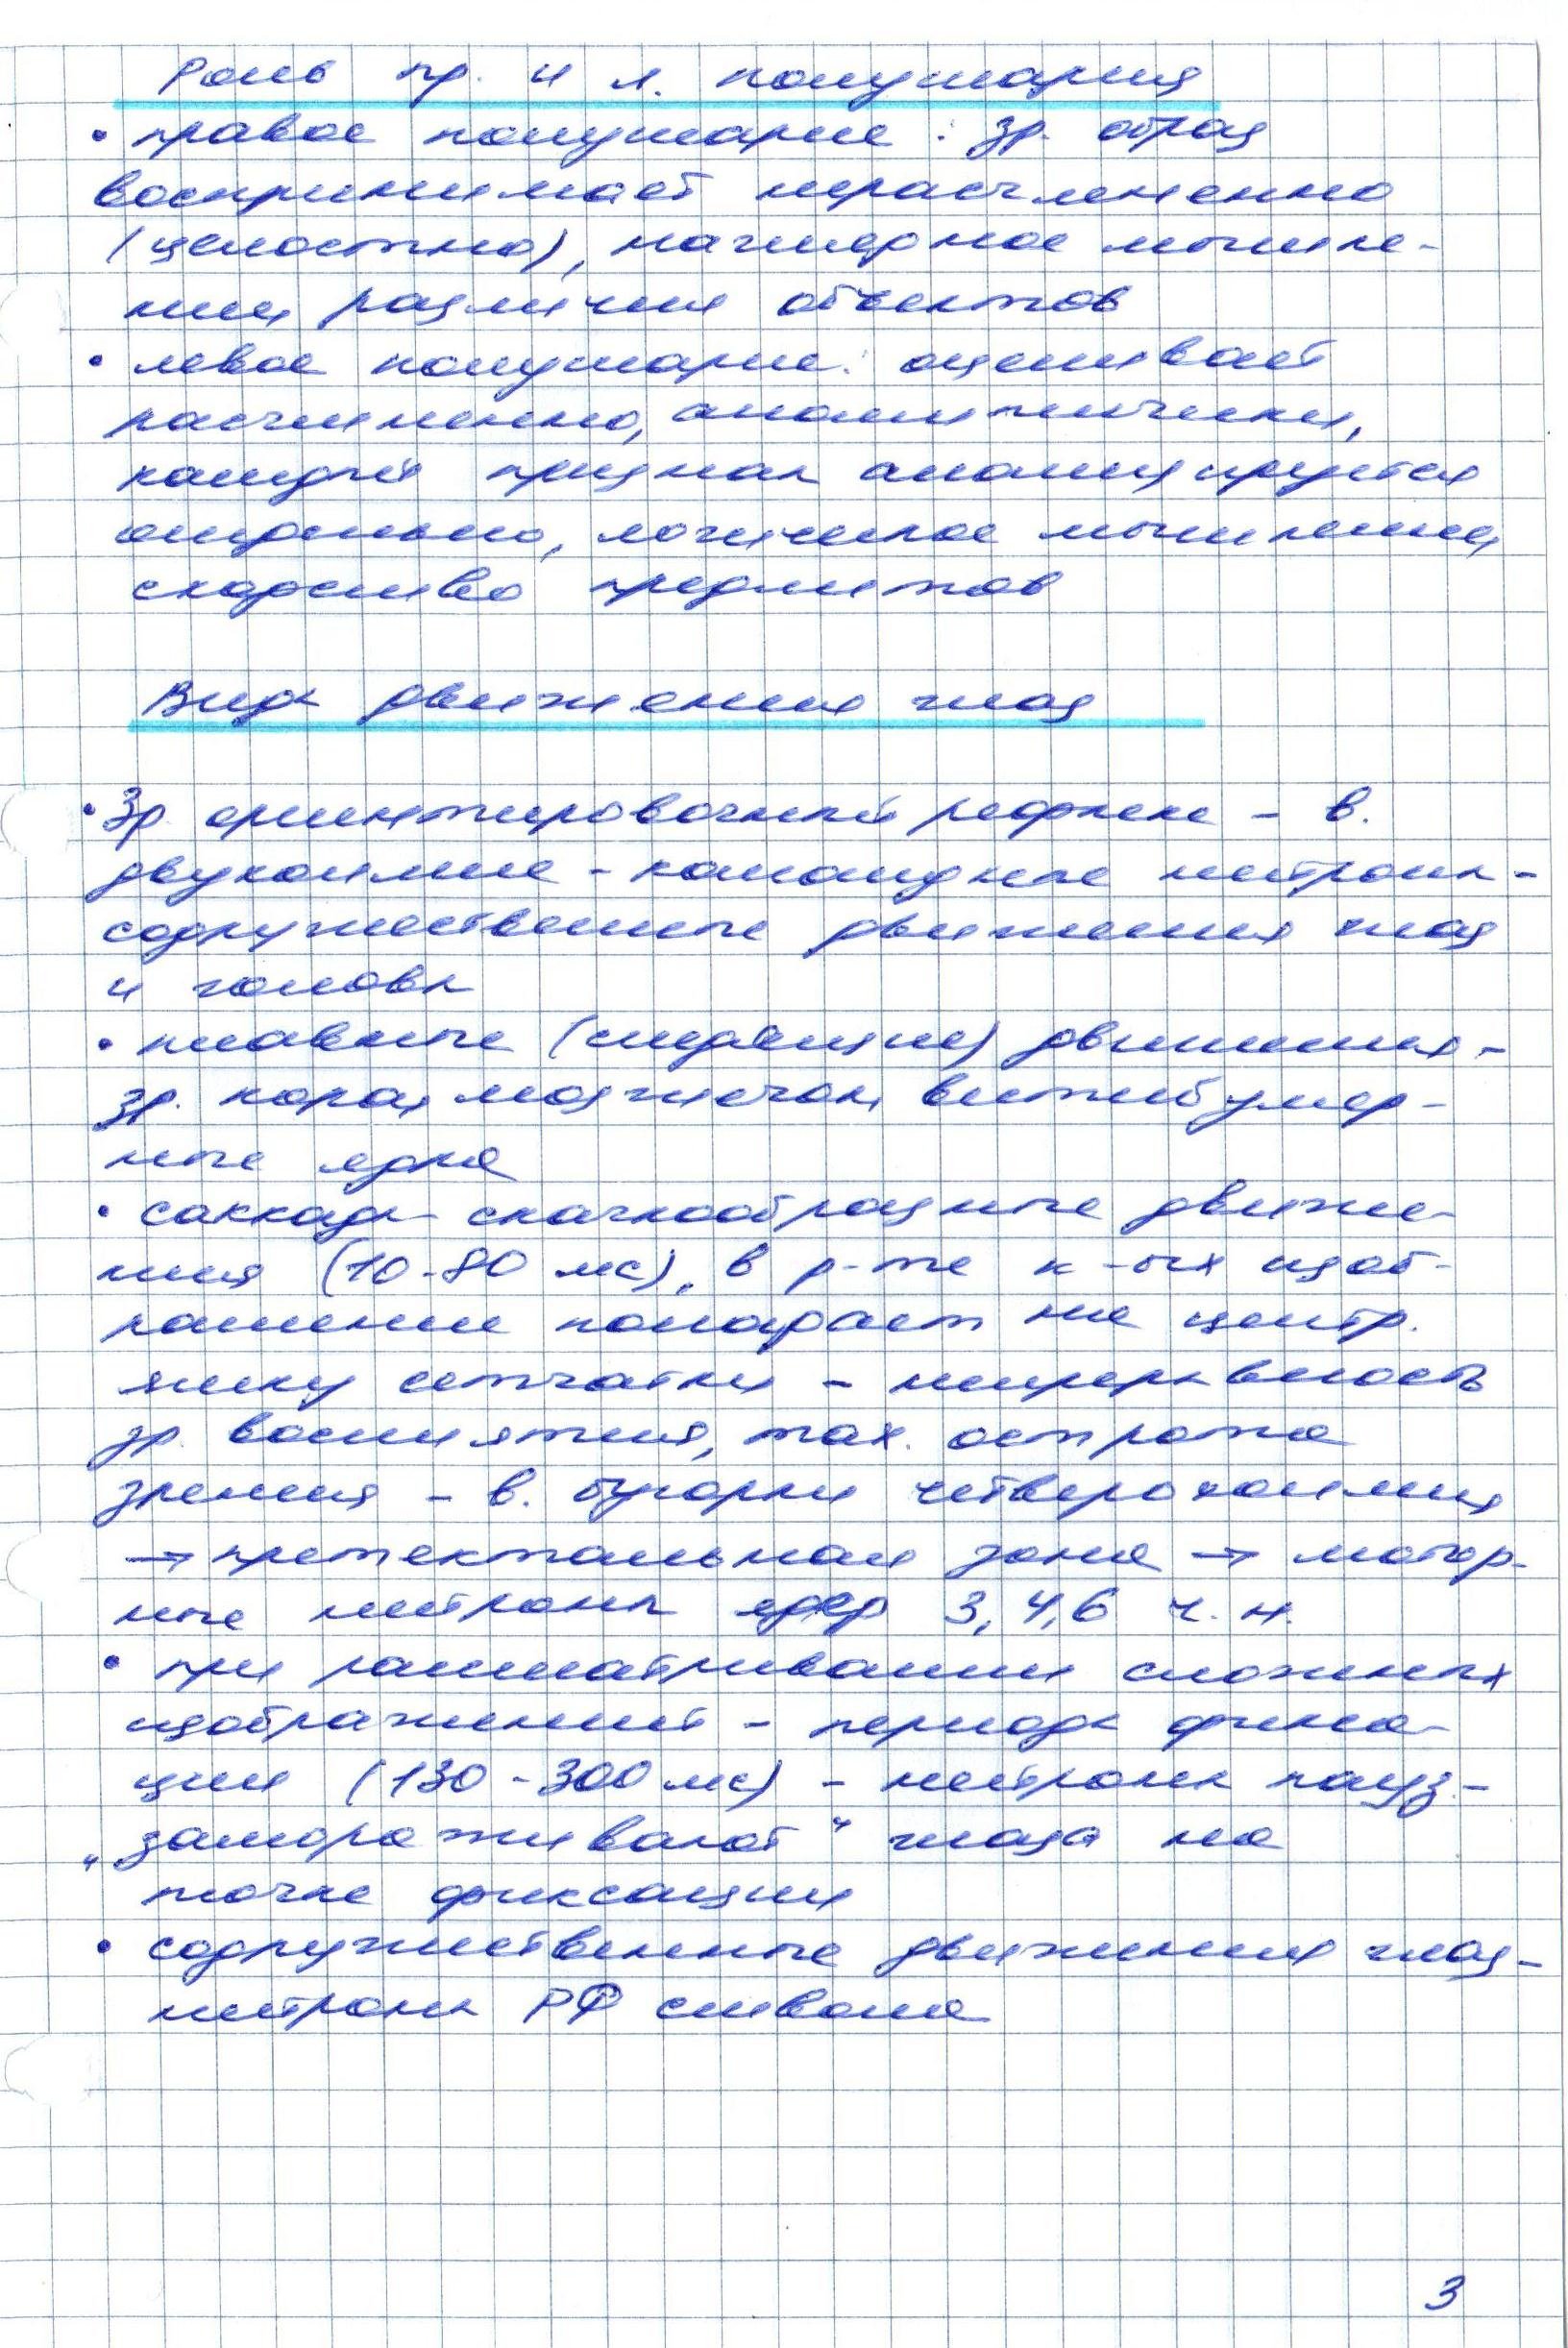 Роль пр. и л. полушария
• правое полушарие: зр. образ
воспринимает нерасчлененно
(целостно), наглядное мышле-
ние, различия объектов
• левое полушарие: оценивает
расчлененно, аналитически,
каждый признак анализируется
отдельно, логическое мышление,
сходство предметов
Виды движения глаз
• Зр. ориентировочный рефлекс - в.
двухолмие - командные нейроны -
содружественные движения глаз
и головы
• плавные (следящие) движения -
зр. кора, мозжечок, вестибуляр-
ные ядра
• саккады - скачкообразные движе-
ния (10-80 мс), в р-те к-ых изоб-
ражение попадает на центр.
ямку сетчатки - непрерывность
зр. восприятия, max. острота
зрения - в. бугорки четверохолмия
→ претектальная зона → мотор-
ные нейроны ядер 3, 4, 6 ч. н.
• при рассматривании сложных
изображений - периоды фикса-
ции (130-300 мс) - нейроны пауз -
„замораживают“ глаза на
точке фиксации
• содружественные движения глаз -
нейроны РФ ствола
3